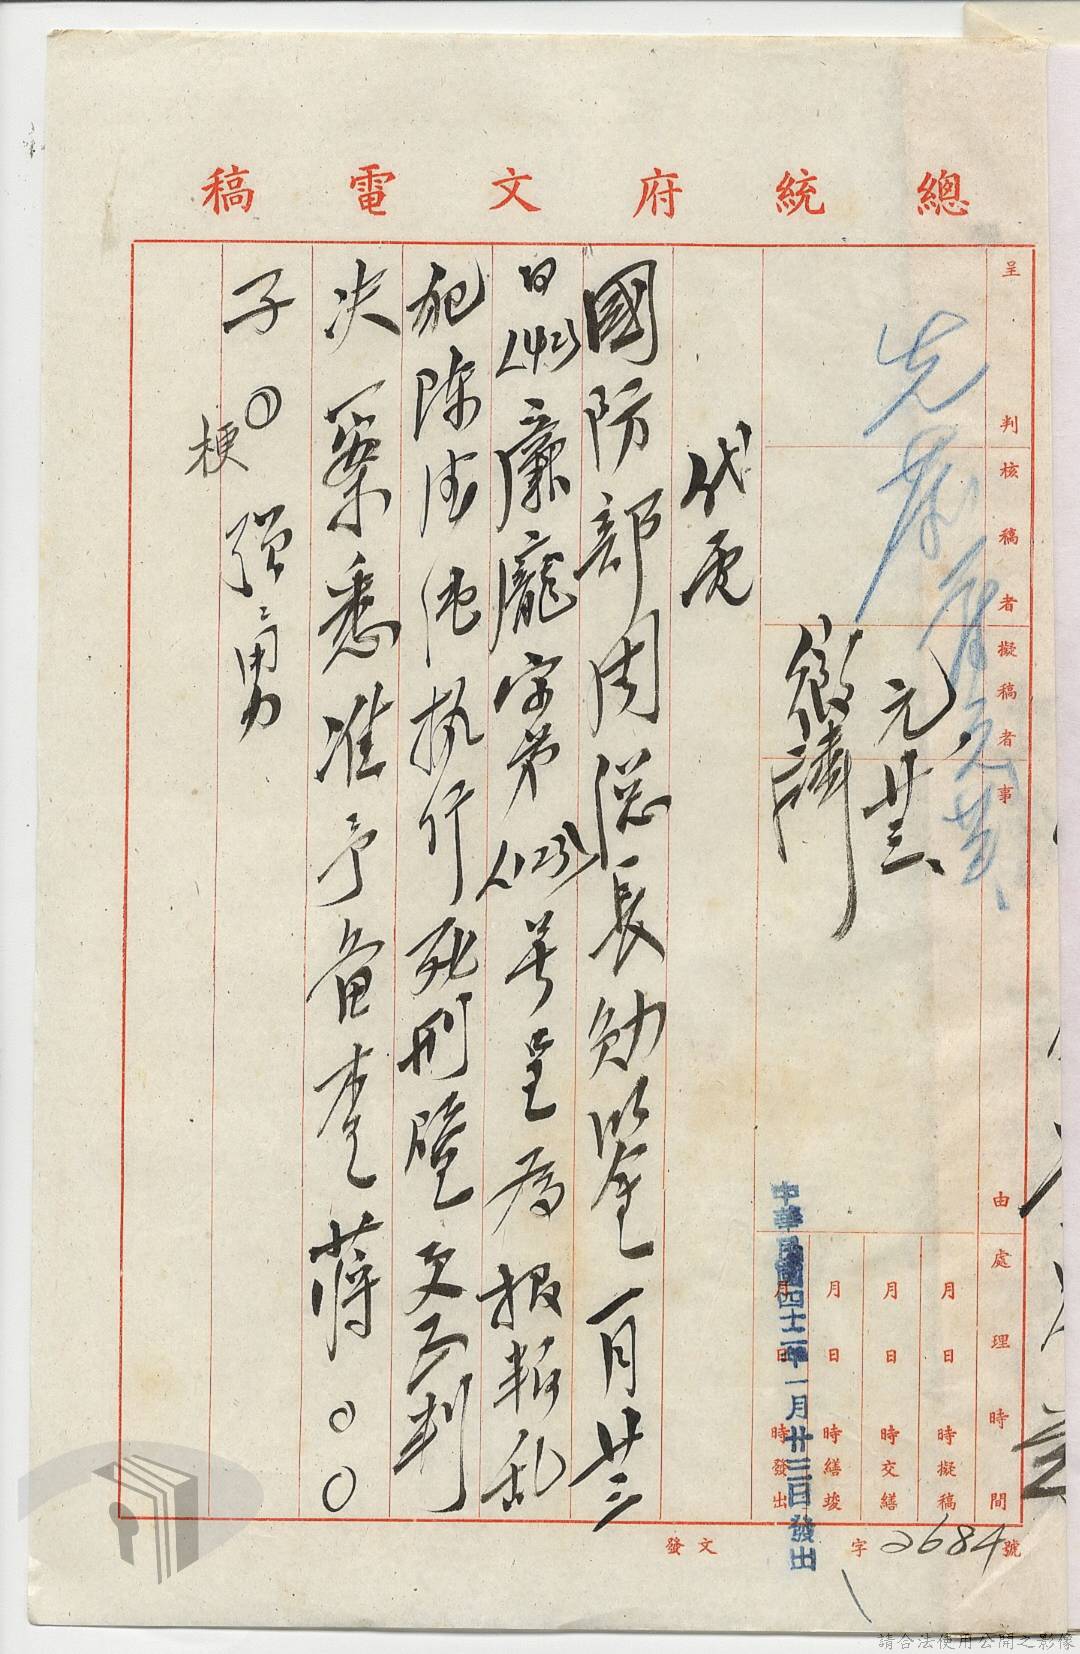 總統府文電稿
呈判
核稿者
擬稿者
事由
處理時間
月日時擬稿
月日時交繕
月日時繕竣
月日時發出
元廿三
代電
國防部周總長勛鑒一月廿三
日(42)廉龐字第(123)號呈為報叛亂
犯陳 執行死刑 判
決一案悉准予備查蔣○○
子○強勇
梗
中華民國四十二年一月廿三日發出
發文 字2684號
請合法使用公開之影像